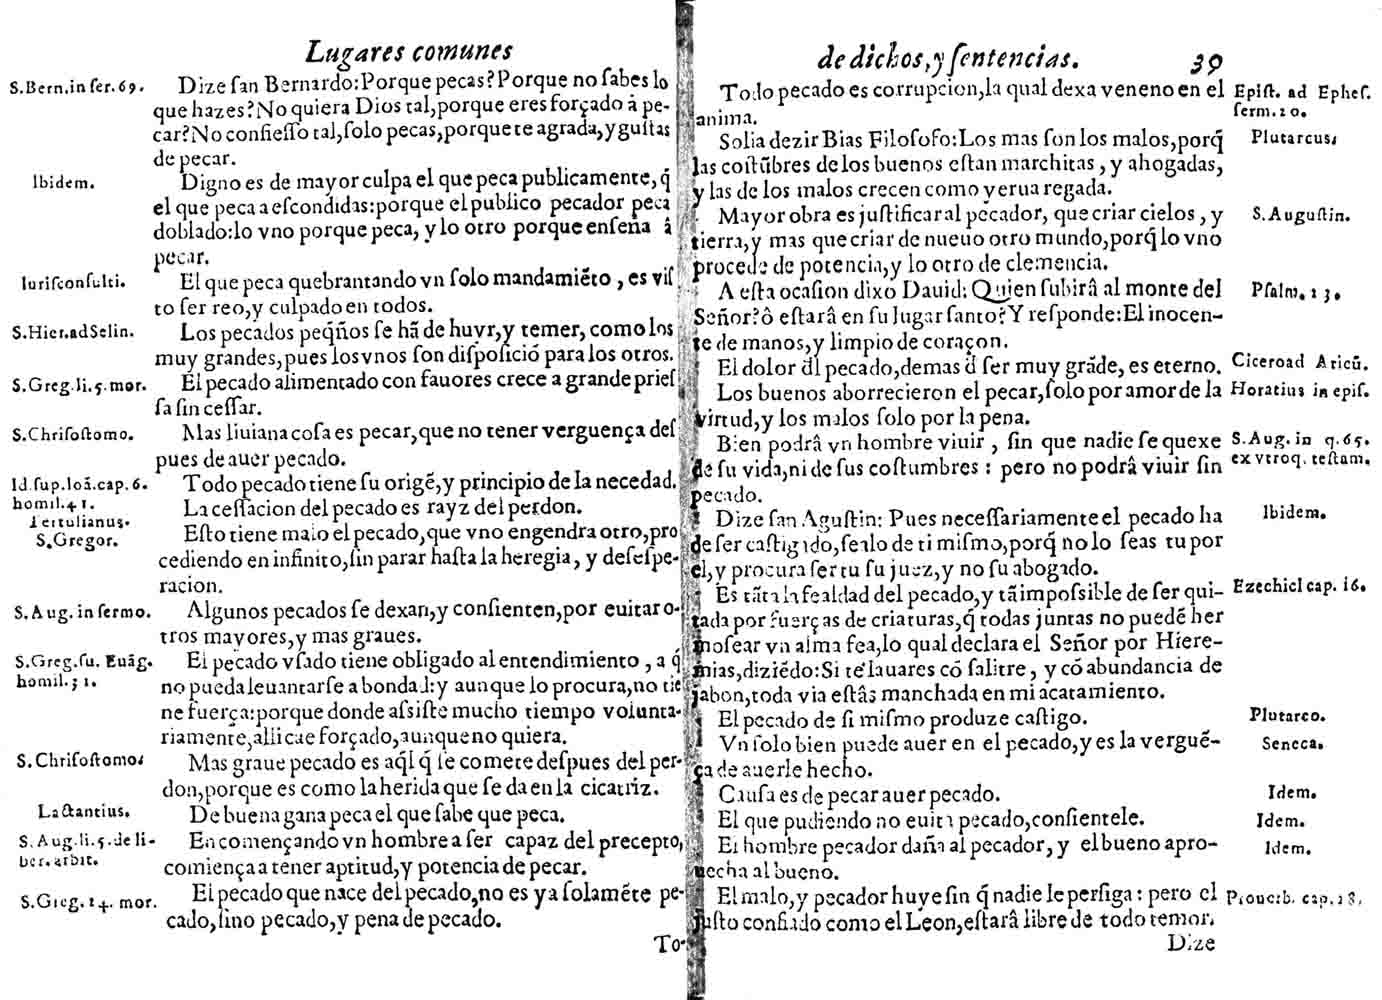 Lugares comunes
S.Bern.in ser.69.
Dize san Bernardo:Porque pecas?Porque no sabes lo
que hazes?No quiera Dios tal,porque eres forçado â pe-
car?No confiesso tal,solo pecas,porque te agrada,y gustas
de pecar.
Ibidem.
Digno es de mayor culpa el que peca publicamente, q̃
el que peca a escondidas:porque el publico pecador peca
doblado:lo vno porque peca, y lo otro porque enseña â
pecar.
Iurisconsulti.
El que peca quebrantando vn solo mandamiẽto , es vis
to ser reo,y culpado en todos.
S.Hier.ad Selin.
Los pecados peq̃ños se hã de huyr,y temer, como los
muy grandes,pues los vnos son disposiciõ para los otros.
S.Greg.li.5.mor.
El pecado alimentado con fauores crece a grande pries
sa sin cessar.
S.Chrisostomo.
Mas liuiana cosa es pecar,que no tener verguença des
pues de auer pecado.
Id.sup.Ioã.cap.6.
homil.41.
Todo pecado tiene su origẽ,y principio de la necedad.
Tertulianus.
La cessacion del pecado es rayz del perdon.
S.Gregor.
Esto tiene malo el pecado,que vno engendra otro,pro
cediendo en infinito,sin parar hasta la heregia, y desespe-
racion.
S.Aug. in sermo.
Algunos pecados se dexan,y consienten,por euitar o-
tros mayores,y mas graues.
S.Greg.su. Euãg.
homil.31.
El pecado vsado tiene obligado al entendimiento , a q̃
no pueda leuantarse a bondad:y aunque lo procura,no tie
ne fuerça:porque donde assiste mucho tiempo volunta-
riamente,alli cae forçado,aunque no quiera.
S.Chrisostomo.
Mas graue pecado es aq̃l q̃ se comete despues del per-
don,porque es como la herida que se da en la cicatriz.
Lactantius.
De buena gana peca el que sabe que peca.
S. Aug.li.5.de li-
ber.arbit.
En començando vn hombre a ser capaz del precepto,
comiença a tener aptitud,y potencia de pecar.
S.Greg.14. mor.
El pecado que nace del pecado,no es ya solamẽte pe-
cado,sino pecado,y pena de pecado.
To-
de dichos,y sentencias.
39
Todo pecado es corrupcion,la qual dexa veneno en el
anima.
Epist. ad Ephes.
serm.10.
Solia dezir Bias Filosofo:Los mas son los malos,porq̃
las costũbres de los buenos estan marchitas , y ahogadas,
y las de los malos crecen como yerua regada.
Plutarcus.
Mayor obra es justificar al pecador, que criar cielos , y
tierra,y mas que criar de nueuo otro mundo,porq̃ lo vno
procede de potencia,y lo otro de clemencia.
S.Augustin.
A esta ocasion dixo Dauid: Quien subirâ al monte del
Señor?ô estarâ en su lugar santo?Y responde:El inocen-
te de manos,y limpio de coraçon.
Psalm.23.
El dolor d̃l pecado,demas d̃ ser muy grãde, es eterno.
Cicero ad Aticũ.
Los buenos aborrecieron el pecar,solo por amor de la
virtud,y los malos solo por la pena.
Horatius in epis.
Bien podrâ vn hombre viuir , sin que nadie se quexe
de su vida,ni de sus costumbres : pero no podrâ viuir sin
pecado.
S.Aug. in q.65.
ex vtroq. testam.
Dize san Agustin: Pues necessariamente el pecado ha
de ser castigado,sealo de ti mismo,porq̃ no lo seas tu por
el,y procura ser tu su juez,y no su abogado.
Ibidem.
Es tãta la fealdad del pecado,y tã impossible de ser qui-
tada por fuerças de criaturas,q̃ todas juntas no puedẽ her
mosear vn alma fea,lo qual declara el Señor por Hiere-
mias,diziẽdo:Si te lauares cõ salitre , y cõ abundancia de
jabon,toda via estâs manchada en mi acatamiento.
Ezechiel cap. 16.
El pecado de si mismo produze castigo.
Plutarco.
Vn solo bien puede auer en el pecado,y es la verguẽ-
ça de auerle hecho.
Seneca.
Causa es de pecar auer pecado.
Idem.
El que pudiendo no euita pecado,consientele.
Idem.
El hombre pecador daña al pecador, y el bueno apro-
uecha al bueno.
Idem.
El malo,y pecador huye sin q̃ nadie le persiga : pero el
justo confiado como el Leon,estarâ libre de todo temor.
Prouerb. cap.28.
Dize